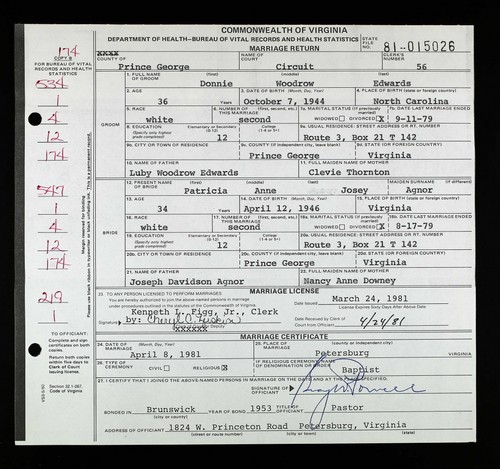 COMMONWEALTH OF VIRGINIA
DEPARTMENT OF HEALTH—BUREAU OF VITAL RECORDS AND HEALTH STATISTICS
MARRIAGE RETURN
STATE FILE NUMBER 81-015026
174
COPY B
FOR BUREAU OF VITAL RECORDS AND HEALTH STATISTICS
XXXX
COUNTY OF Prince George
COURT Circuit
CLERK'S NUMBER 56
534
1
4
12
174
547
1
4
12
174
219
1
GROOM
1. FULL NAME (first) (middle) (last)
Donnie Woodrow Edwards
2. AGE 36 Years
3. DATE OF BIRTH (Month, Day, Year) October 7, 1944
4. PLACE OF BIRTH (state or foreign country) North Carolina
5. RACE white
6. NUMBER OF THIS MARRIAGE (first, second, etc.) second
7a. MARITAL STATUS (if previously married) WIDOWED DIVORCED X
7b. DATE LAST MARRIAGE ENDED 9-11-79
8. EDUCATION (Specify only highest grade completed) Elementary or Secondary (0-12) 12 College (1-4 or 5+)
9a. USUAL RESIDENCE: STREET ADDRESS OR RT. NUMBER
Route 3, Box 21 T 142
9b. CITY OR TOWN OF RESIDENCE
9c. COUNTY (if independent city, leave blank) Prince George
9d. STATE (OR FOREIGN COUNTRY) Virginia
10. FULL NAME OF FATHER Luby Woodrow Edwards
11. FULL MAIDEN NAME OF MOTHER Clevie Thornton
BRIDE
12. PRESENT NAME OF BRIDE (first) (middle) (last) MAIDEN SURNAME (if different)
Patricia Anne Josey Agnor
13. AGE 34 Years
14. DATE OF BIRTH (Month, Day, Year) April 12, 1946
15. PLACE OF BIRTH (state or foreign country) Virginia
16. RACE white
17. NUMBER OF THIS MARRIAGE (first, second, etc.) second
18a. MARITAL STATUS (if previously married) WIDOWED DIVORCED X
18b. DATE LAST MARRIAGE ENDED 8-17-79
19. EDUCATION (Specify only highest grade completed) Elementary or Secondary (0-12) 12 College (1-4 or 5+)
20a. USUAL RESIDENCE: STREET ADDRESS OR RT. NUMBER
Route 3, Box 21 T 142
20b. CITY OR TOWN OF RESIDENCE
20c. COUNTY (if independent city, leave blank) Prince George
20d. STATE (OR FOREIGN COUNTRY) Virginia
21. FULL NAME OF FATHER Joseph Davidson Agnor
22. FULL MAIDEN NAME OF MOTHER Nancy Anne Downey
Margin reserved for binding
Please use black ribbon in typewriter or black unfading ink. This is a permanent record.
MARRIAGE LICENSE
23. TO ANY PERSON LICENSED TO PERFORM MARRIAGES:
You are hereby authorized to join the above-named persons in marriage under procedures outlined in the statutes of the Commonwealth of Virginia.
March 24, 1981
License Expires Sixty Days After Above Date
Kenneth L. Figg, Jr., Clerk
Signature by: Cheryl
XXXXXX
Date Received by Clerk of Court from Officiant 4/24/81
MARRIAGE CERTIFICATE
TO OFFICIANT:
Complete and sign certificates of marriage.
Return both copies within five days to Clerk of Court issuing license.
Section 32.1-267, Code of Virginia
24. DATE OF MARRIAGE (Month, Day, Year) April 8, 1981
25. PLACE OF MARRIAGE Petersburg VIRGINIA
26. TYPE OF CEREMONY CIVIL RELIGIOUS X
IF RELIGIOUS CEREMONY NAME OF DENOMINATION OR ORDER Baptist
27. I CERTIFY THAT I JOINED THE ABOVE-NAMED PERSONS IN MARRIAGE ON THE DATE AND AT THE PLACE SPECIFIED.
BONDED IN Brunswick (city or county) YEAR OF BOND 1953
Powell
Pastor
ADDRESS OF OFFICIANT 1824 W. Princeton Road Petersburg, Virginia
(street or route number) (city or town) (state)